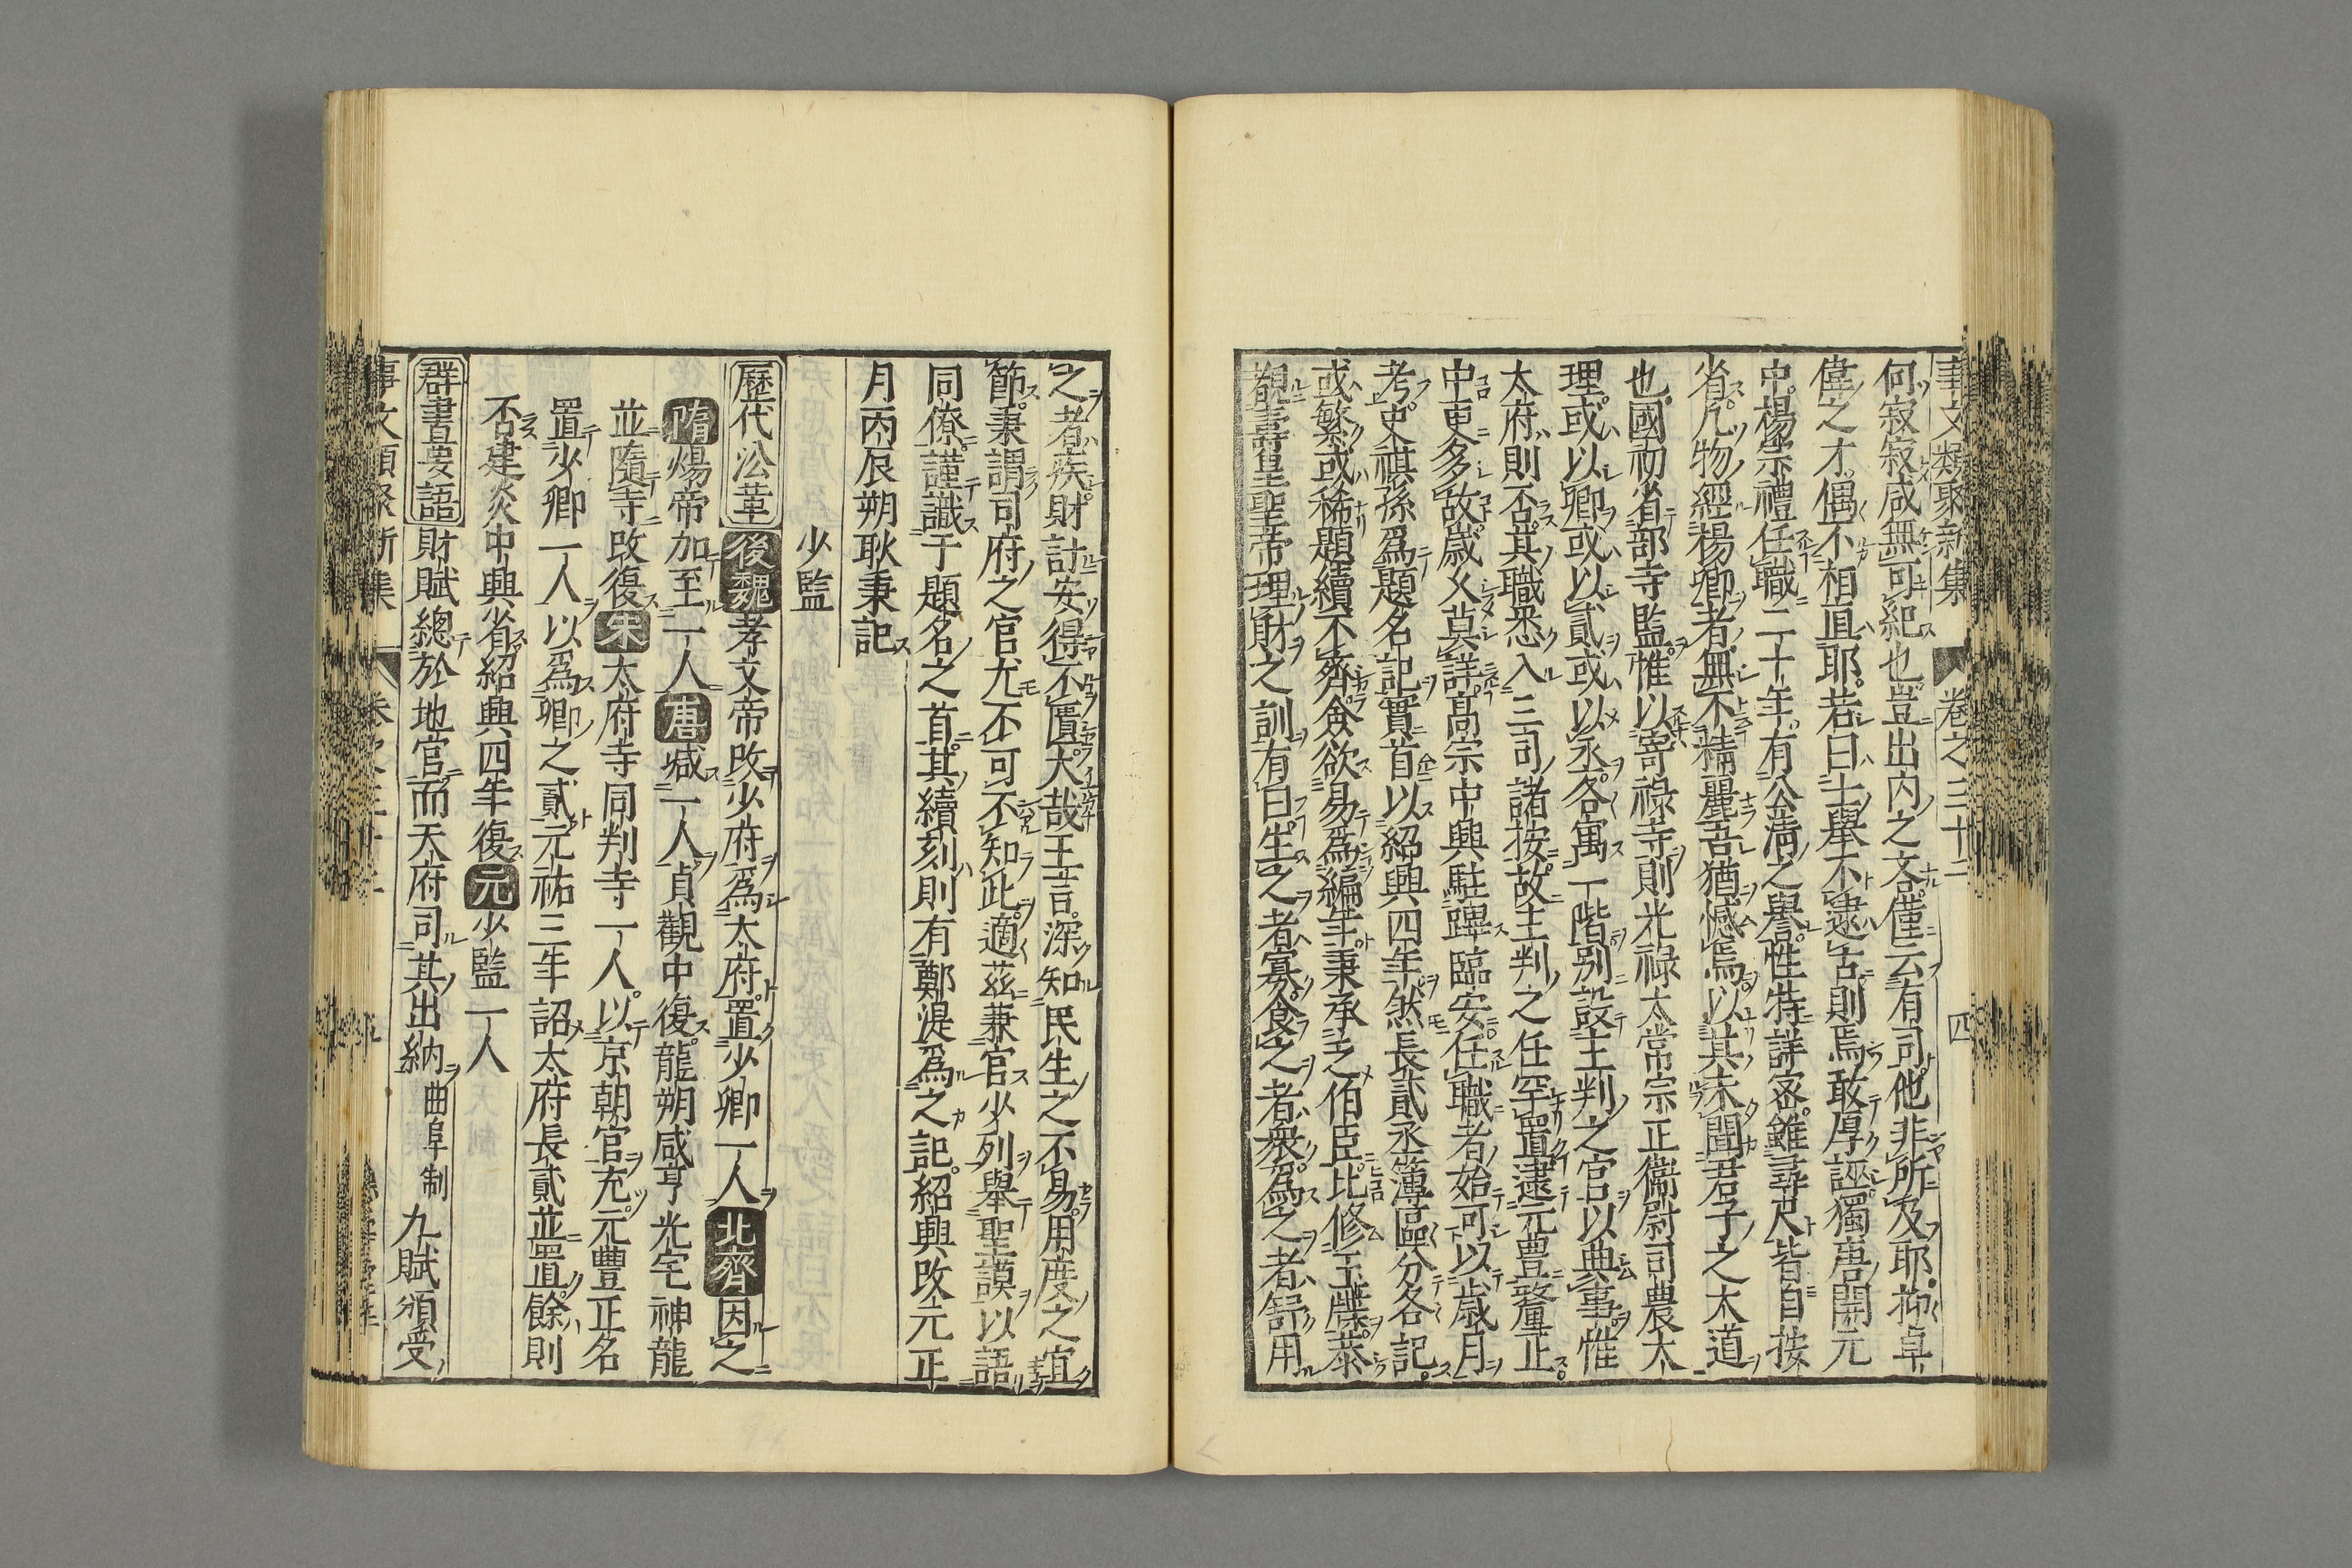 事文類聚新集 卷之三十二 四
何寂寂咸無可紀也豈出內之文僅云有司他非所及耶抑卓
偉之才偶不相直耶若曰士舉不逮古則焉敢厚誣獨唐開元
中楊宗禮任職二十年有公清之譽性特詳密雖尋尺皆自按
省凡物經楊卿者無不精麗吾猶憾焉以其未聞君子之大道
也國初省部寺監惟以寄祿寺則光祿太常宗正衞尉司農太
理或以卿或以貳或以丞各寓一階別設主判之官以典事惟
太府則否其職悉入三司諸按故主判之任罕置逮元豊釐正
中吏多故歲乆莫詳髙宗中興駐蹕臨安任職者始可以歲月
考史祺孫爲題名記實首以紹興四年然長貳丞簿區分各記
或繁或稀題續不齊僉欲易爲編年秉承之伯臣比修玉牒恭
覩壽皇聖帝理財之訓有曰生之者寡食之者衆爲之者舒用
之者疾財計安得不匱大哉王言深知民生之不易用度之宜
節秉謂司府之官尤不可不知此適茲兼官少列舉聖謨以語
同僚謹識于題名之首其續刻則有鄭湜爲之記紹興改元正
月丙辰朔耿秉記
少監
歷代沿革 後魏孝文帝改少府爲太府置少卿一人北齊因之
隋煬帝加至二人唐減一人貞觀中復龍朔咸亨光宅神龍
並隨寺改復宋太府寺同判寺一人以京朝官充元豐正名
置少卿一人以爲卿之貳元祐三年詔太府長貳並置餘則
否建炎中興省紹興四年復元少監一人
群書要語 財賦總於地官而天府司其出納曲阜制九賦頒受